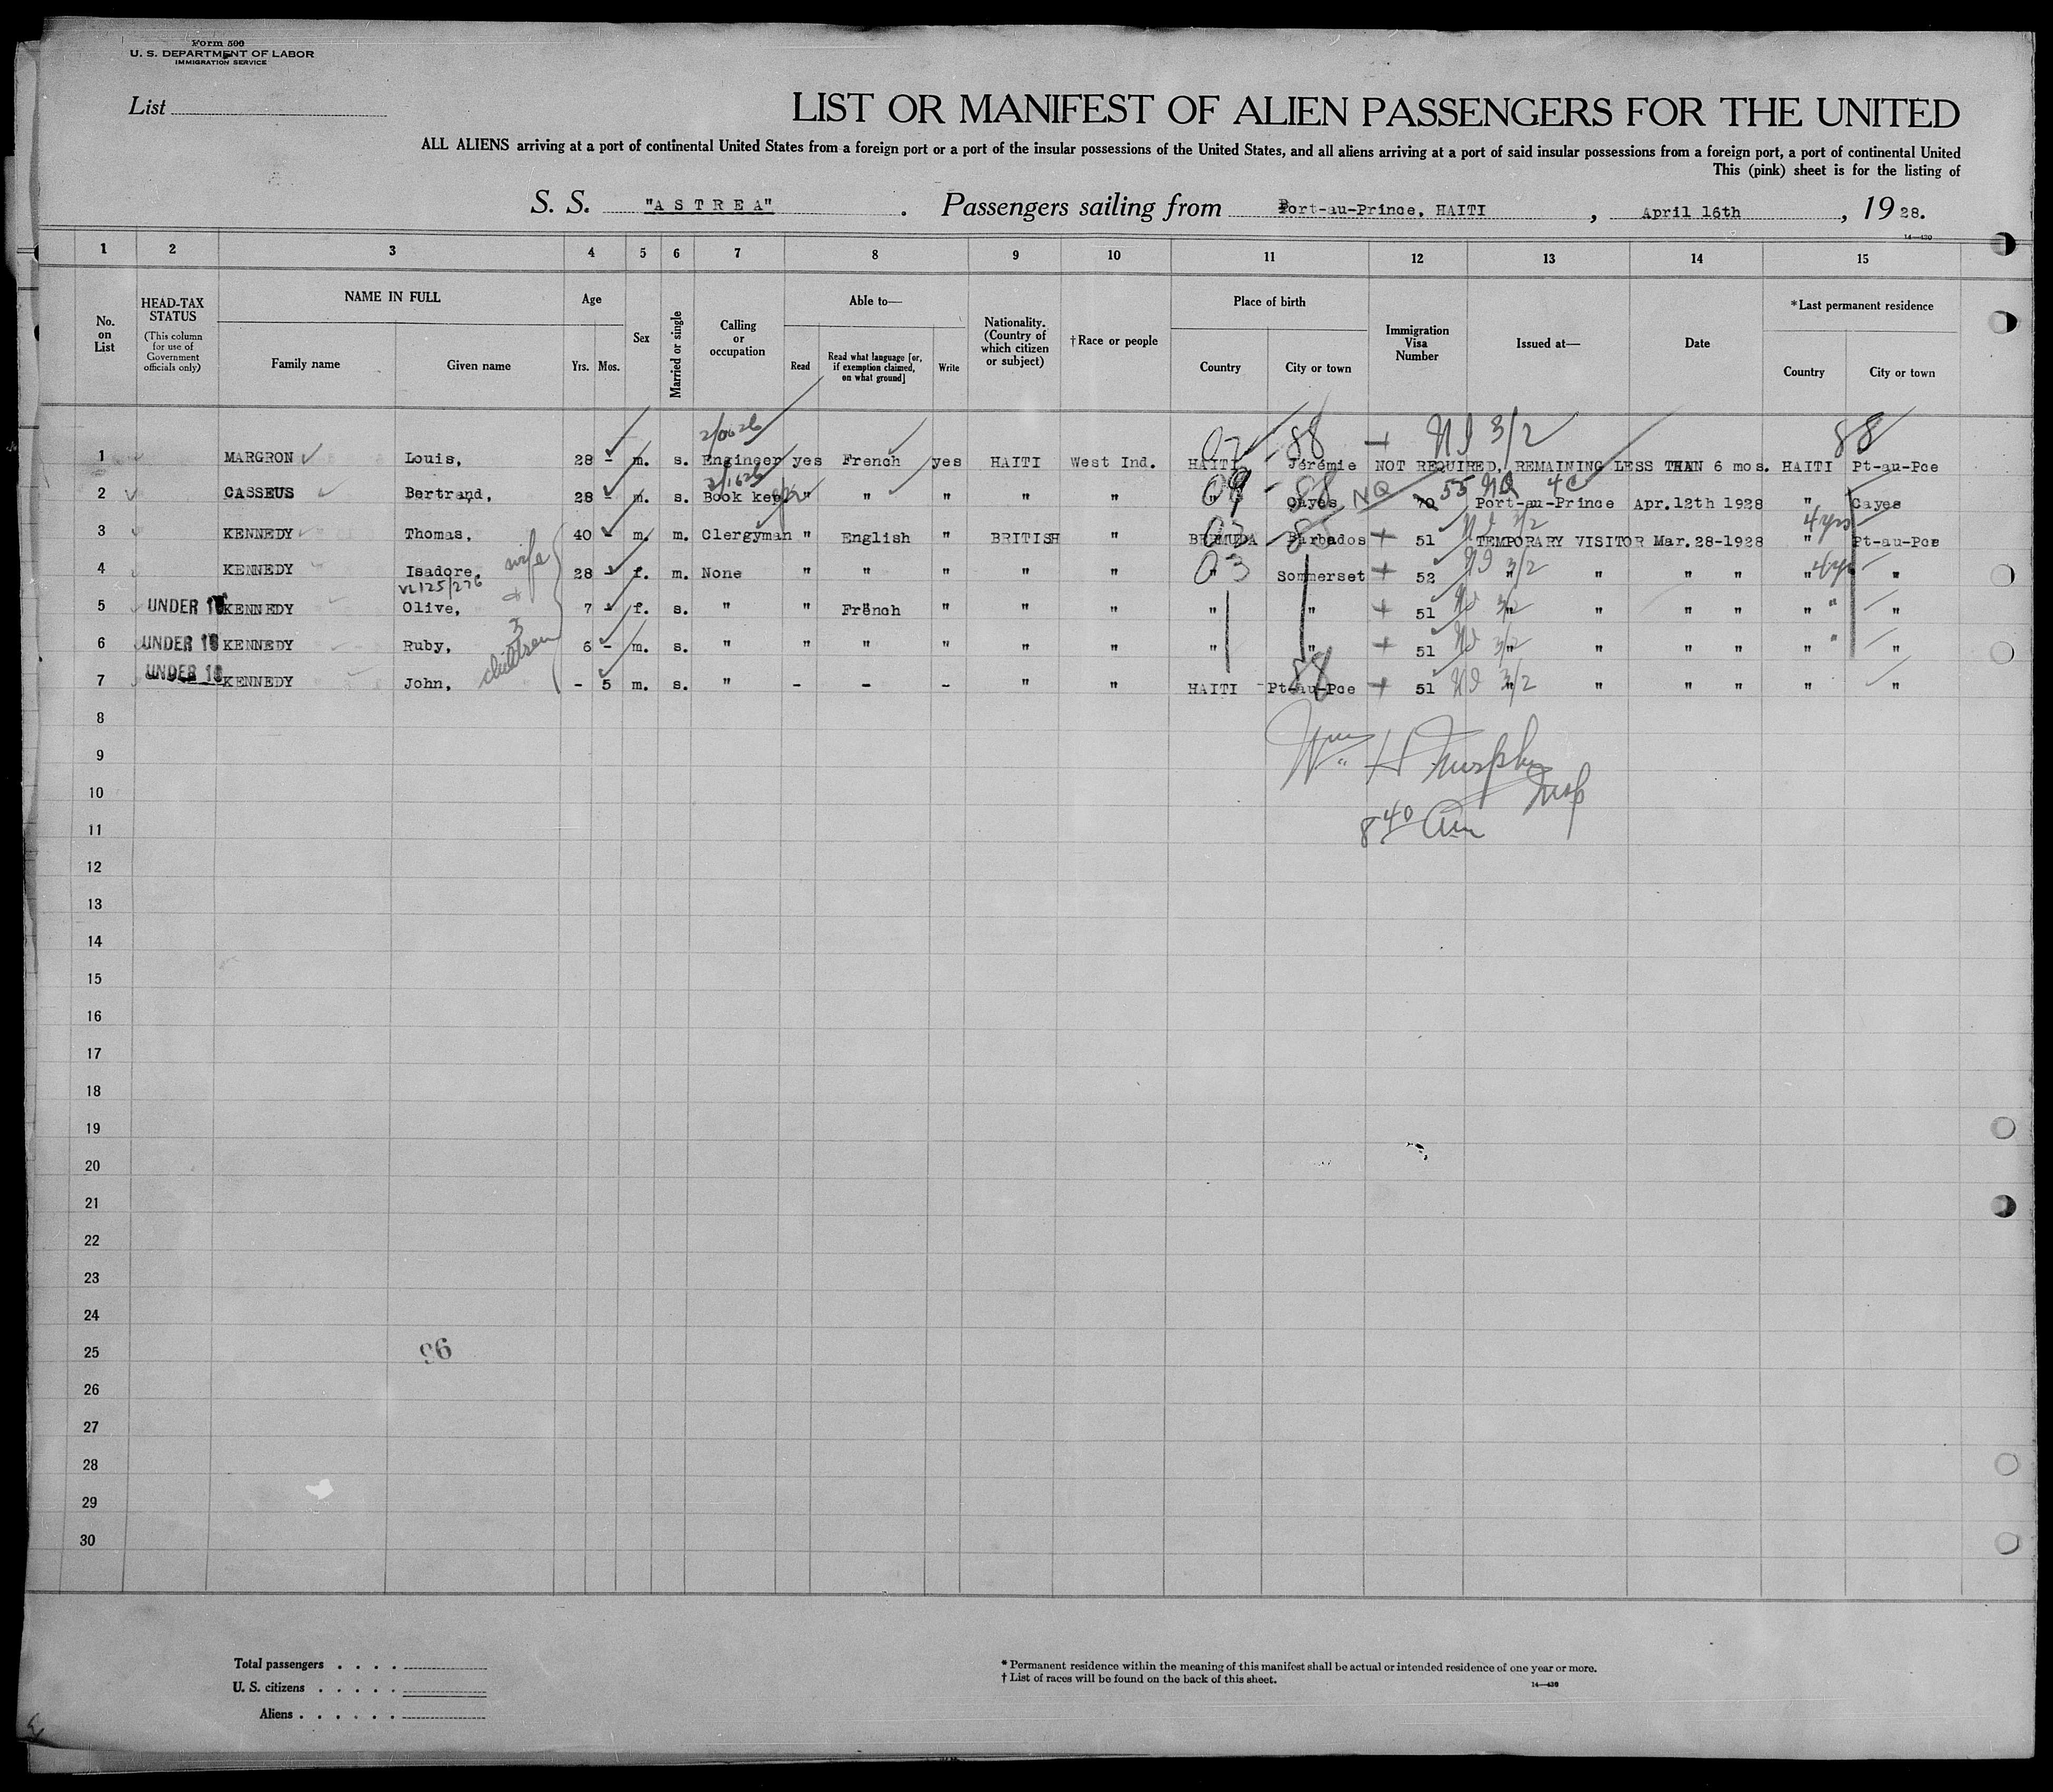 Form 500
U. S. DEPARTMENT OF LABOR
IMMIGRATION SERVICE
List
LIST OR MANIFEST OF ALIEN PASSENGERS FOR THE UNITED
ALL ALIENS arriving at a port of continental United States from a foreign port or a port of the insular possessions of the United States, and all aliens arriving at a port of said insular possessions from a foreign port, a port of continental United
This (pink) sheet is for the listing of
S. S. "ASTREA" . Passengers sailing from Port-au-Prince, HAITI , April 16th , 19 28.
14—430
1 2 3 4 5 6 7 8 9 10 11 12 13 14 15
No. on List
HEAD-TAX STATUS
(This column for use of Government officials only)
NAME IN FULL
Family name Given name
Age
Yrs. Mos.
Sex
Married or single
Calling or occupation
Able to—
Read
Read what language [or, if exemption claimed, on what ground]
Write
Nationality. (Country of which citizen or subject)
†Race or people
Place of birth
Country City or town
Immigration Visa Number
Issued at—
Date
*Last permanent residence
Country City or town
88 + NI 3/2 88
1 MARGRON Louis, 28 - m. s. Engineer yes French yes HAITI West Ind. HAITI Jérémie NOT REQUIRED, REMAINING LESS THAN 6 mos. HAITI Pt-au-Pce
2 CASSEUS Bertrand, 28 - m. s. Book kee " " " " " 88 Cayes NQ 70 55 NQ 4c Port-au-Prince Apr.12th 1928 " Cayes
3 KENNEDY Thomas, 40 - m. m. Clergyman " English " BRITISH " BERMUDA Barbados + 51 NI 3/2 TEMPORARY VISITOR Mar.28-1928 " 4 yrs Pt-au-Pce
4 KENNEDY Isadore, wife 28 - f. m. None " " " " " 03 " Sommerset + 52 NI 3/2 " " " " " 4 yrs "
VL125/276 &
5 UNDER 16 KENNEDY Olive, 7 - f. s. " " French " " " " " + 51 NI 3/2 " " " " " " "
3 children
6 UNDER 16 KENNEDY Ruby, 6 - m. s. " " " " " " " " + 51 NI 3/2 " " " " " " "
7 UNDER 16 KENNEDY John, - 5 m. s. " - - - " " HAITI Pt-au-Pce 88 + 51 NI 3/2 " " " " " "
8
Wm H Murphy
9
Insp
10
8 40 Am
11
12
13
14
15
16
17
18
19
20
21
22
23
24
25
96
26
27
28
29
30
Total passengers . . . .
U. S. citizens . . . . .
Aliens . . . . . .
* Permanent residence within the meaning of this manifest shall be actual or intended residence of one year or more.
† List of races will be found on the back of this sheet.
14—430